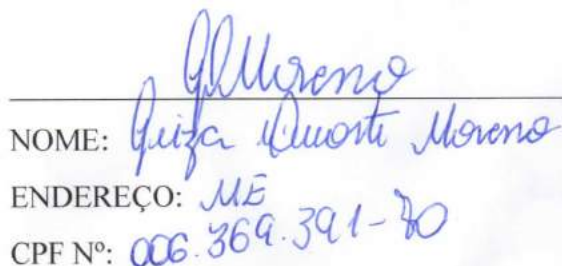 GDMoreno
NOME: Geiza Duarte Moreno
ENDEREÇO: ME
CPF Nº: 006.369.391-70